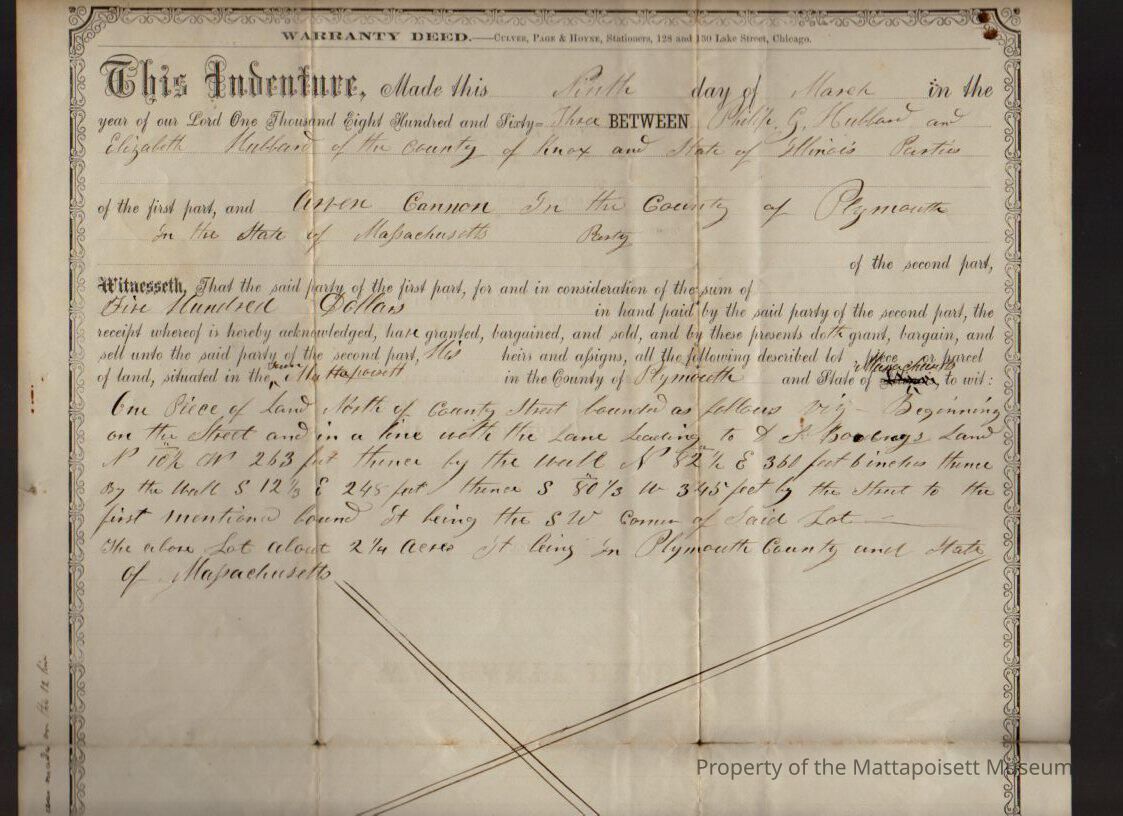 WARRANTY DEED.—CULVER, PAGE & HOYNE, Stationers, 128 and 130 Lake Street, Chicago.
This Indenture, Made this Ninth day of March in the
year of our Lord One Thousand Eight Hundred and Sixty= Three BETWEEN Philip G. Hubbard and
Elizabeth Hubbard of the County of Knox and State of Illinois Parties
of the first part, and Arven Cannon In the County of Plymouth
In the State of Massachusetts Party
of the second part,
Witnesseth, That the said party of the first part, for and in consideration of the sum of
Five Hundred Dollars in hand paid by the said party of the second part, the
receipt whereof is hereby acknowledged, have granted, bargained, and sold, and by these presents doth grant, bargain, and
sell unto the said party of the second part, His heirs and assigns, all the following described lot piece or parcel
Massachusetts
of land, situated in the Mattapoisett in the County of Plymouth and State of to wit:
One Piece of Land North of County Street bounded as follows viz- Beginning
on the Street and in a line with the Lane Leading to D Land
N 10½ W 263 feet thence by the wall N 82½ E 360 feet 6 inches thence
By the wall S 12⅓ E 245 feet thence S 80⅓ W 345 feet by the Street to the
first mentiond bound It being the S W Corner of Said Lot —
The above Lot about 2¼ Acres It being In Plymouth County and State
of Massachusetts
made on the 12
Property of the Mattapoisett Museum